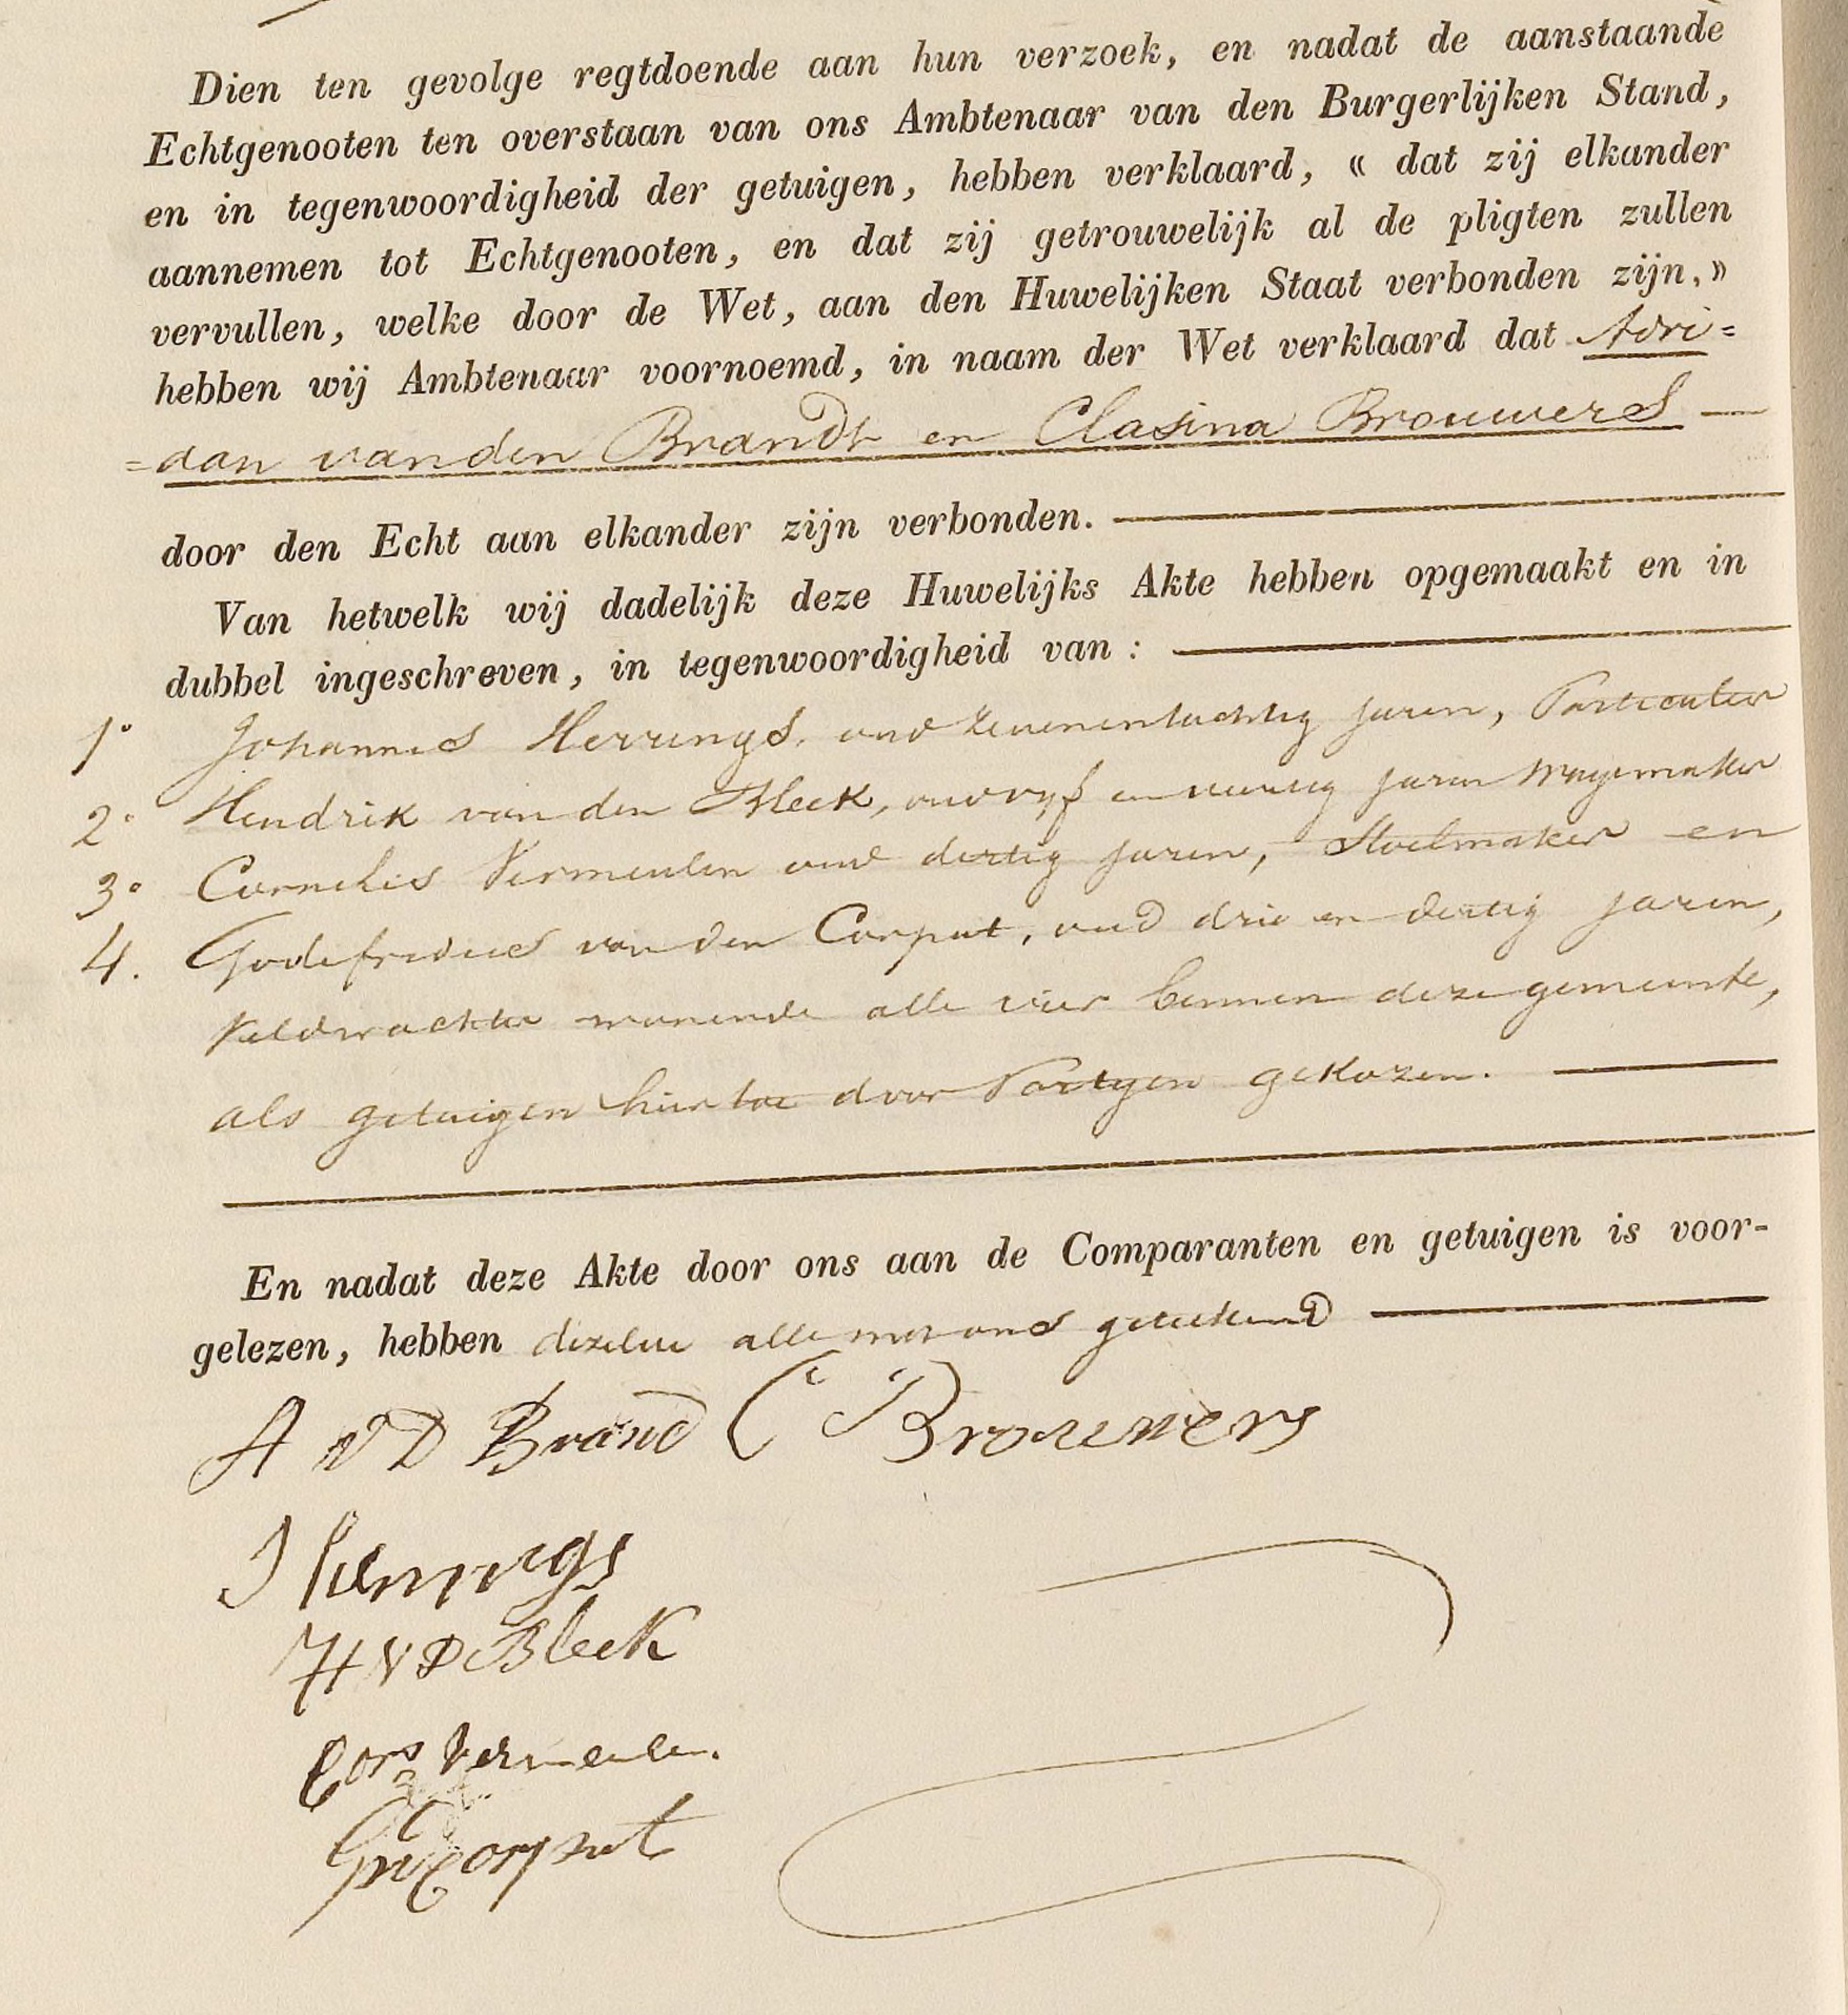 Dien ten gevolge regtdoende aan hun verzoek, en nadat de aanstaande
Echtgenooten ten overstaan van ons Ambtenaar van den Burgerlijken Stand,
en in tegenwoordigheid der getuigen, hebben verklaard, « dat zij elkander
aannemen tot Echtgenooten, en dat zij getrouwelijk al de pligten zullen
vervullen, welke door de Wet, aan den Huwelijken Staat verbonden zijn,»
hebben wij Ambtenaar voornoemd, in naam der Wet verklaard dat Adri=
=aan van den Brandt en Clasina Brouwers
door den Echt aan elkander zijn verbonden.
Van hetwelk wij dadelijk deze Huwelijks Akte hebben opgemaakt en in
dubbel ingeschreven, in tegenwoordigheid van :
1° Johannes Herrings, oud zevenentachtig jaren, Particulier
2° Hendrik van den Bleek, oud vyf en veertig jaren Wagemaker
3° Cornelis Vermeulen oud dertig jaren, Stoelmaker en
4. Godefridus van den Corput, oud drie en dertig jaren,
Veldwachter wonende alle vier binnen deze gemeente,
als getuigen hier toe door Partyen gekozen.
En nadat deze Akte door ons aan de Comparanten en getuigen is voor-
gelezen, hebben dezelve alle met ons geteekend
A V D Brand C Brouwers
J Herrings
H V D Bleek
Cors Vermeulen.
GvdCorput